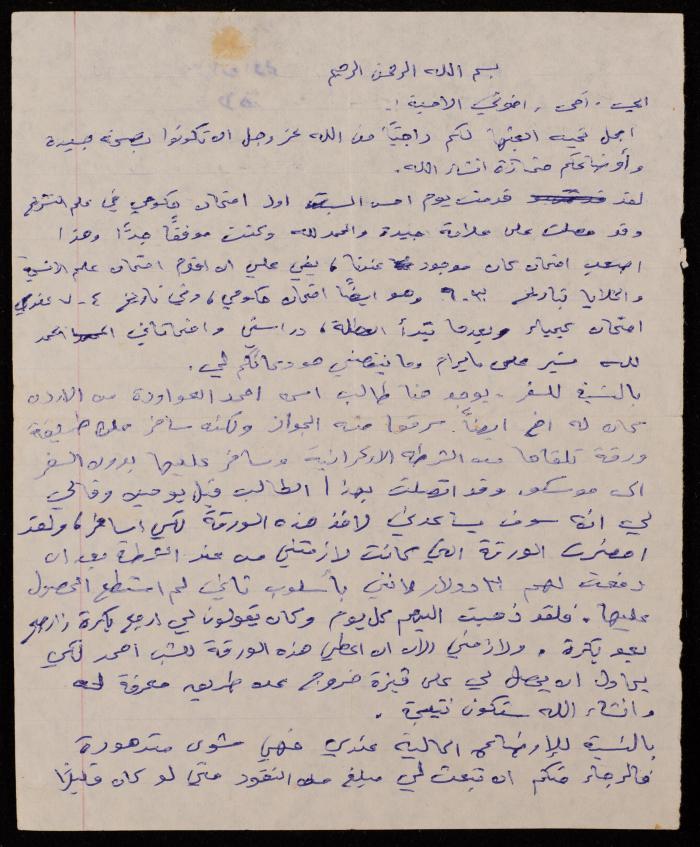 بسم الله الرحمن الرحيم
ابي، أمي، اخوتي الاحبة!
اجمل تحية ابعثها لكم راجيًا من الله عز وجل ان تكونوا بصحة جيدة
وأوضاعكم ممتازة انشاء الله.
لقد قدمت يوم امس اول امتحان حكومي في علم التشريح
وقد حصلت على علامة جيدة والحمد لله وكنت موفقًا جدًا وهذا
اصعب امتحان كان موجود عندنا، بقي علي ان اقدم امتحان علم الانسجة
والخلايا بتاريخ ٣٠-٦ وهو ايضًا امتحان حكومي، وفي تاريخ ٤-٧ عندي
امتحان كيمياء وبعدها تبدأ العطلة، دراستي وامتحاناتي الحمد
لله تسير على ما يرام وما ينقصني هو دعائكم لي.
بالنسبة للسفر. يوجد هنا طالب اسمه احمد العواودة من الاردن
كان له اخ ايضًا سرقوا منه الجواز ولكنه سافر على طريقة
ورقة تلقاها من الشرطة الاوكرانية وسافر عليها بدون السفر
الى موسكو. وقد اتصلت بهذا الطالب قبل يومين وقال لي
لي انه سوف يساعدني لأخذ هذه الورقة لكي اسافر، ولقد
احضرت الورقة التي كانت لازمتني من عند الشرطة بعد ان
دفعت لهم ٣٠ دولار لأنني بأسلوب ثاني لم استطع الحصول
عليها. فلقد ذهبت اليهم كل يوم وكان يقولون لي ارجع بكرة، ارجع
بعد بكرة. ولازمني الآن ان اعطي هذه الورقة للشب احمد لكي
يحاول ان يحصل لي على فيزة خروج عن طريق معرفة له
وانشاء الله ستكون نتيجة.
بالنسبة للأوضاع المالية عندي فهي شوي متدهورة
فالرجاء منكم ان تبعث لي مبلغ من النقود حتى لو كان قليلًا